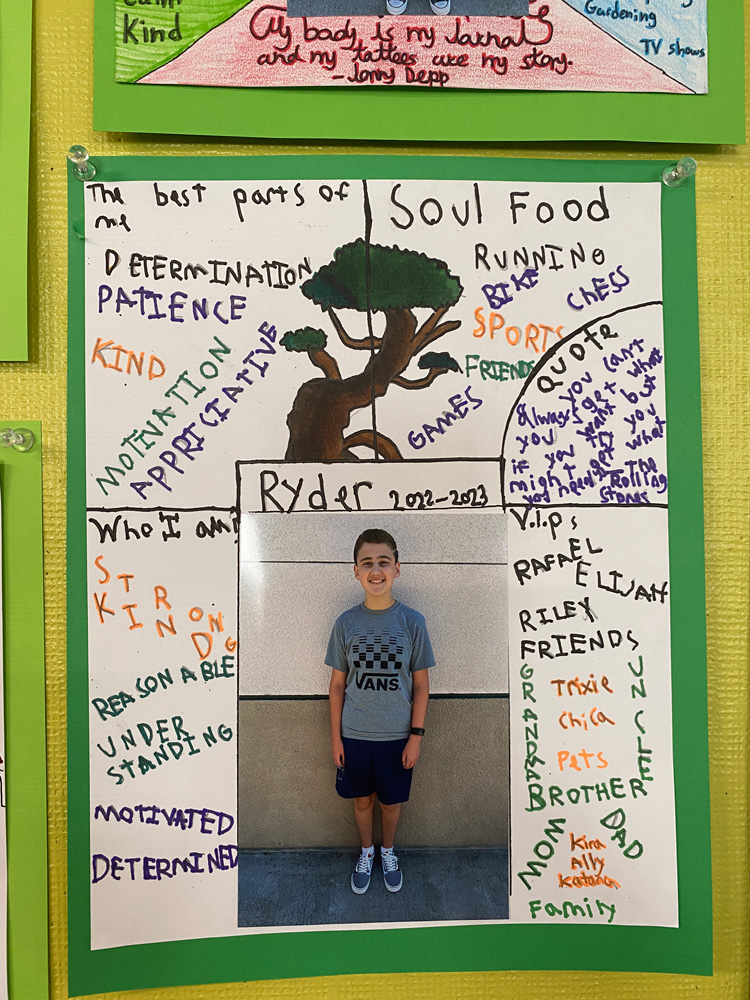 Kind
My body is my Jarnal
and my tattoes are my story.
-Jonny Depp
Gardening
TV shows
The best parts of
me
DETERMINATION
PATIENCE
KIND
MOTIVATION
APPRICIATIVE
Soul Food
RUNNING
BIKE
CHESS
SPORTS
FRIENDS
GAMES
QUOTE
you can't
always get what
you want but
if you try you
might get what
you need" The
Rolling
Stones
Ryder 2022-2023
Who I am
STRONG
KIND
REASONABLE
UNDER
STANDING
MOTIVATED
DETERMINED
VANS
V.I.P s
RAFAEL
ELIJAH
RILEY
FRIENDS
GRANDMA
Trixie
Chica
Pets
UNCLE
BROTHER
MOM
DAD
Kira
Ally
Katana
Family